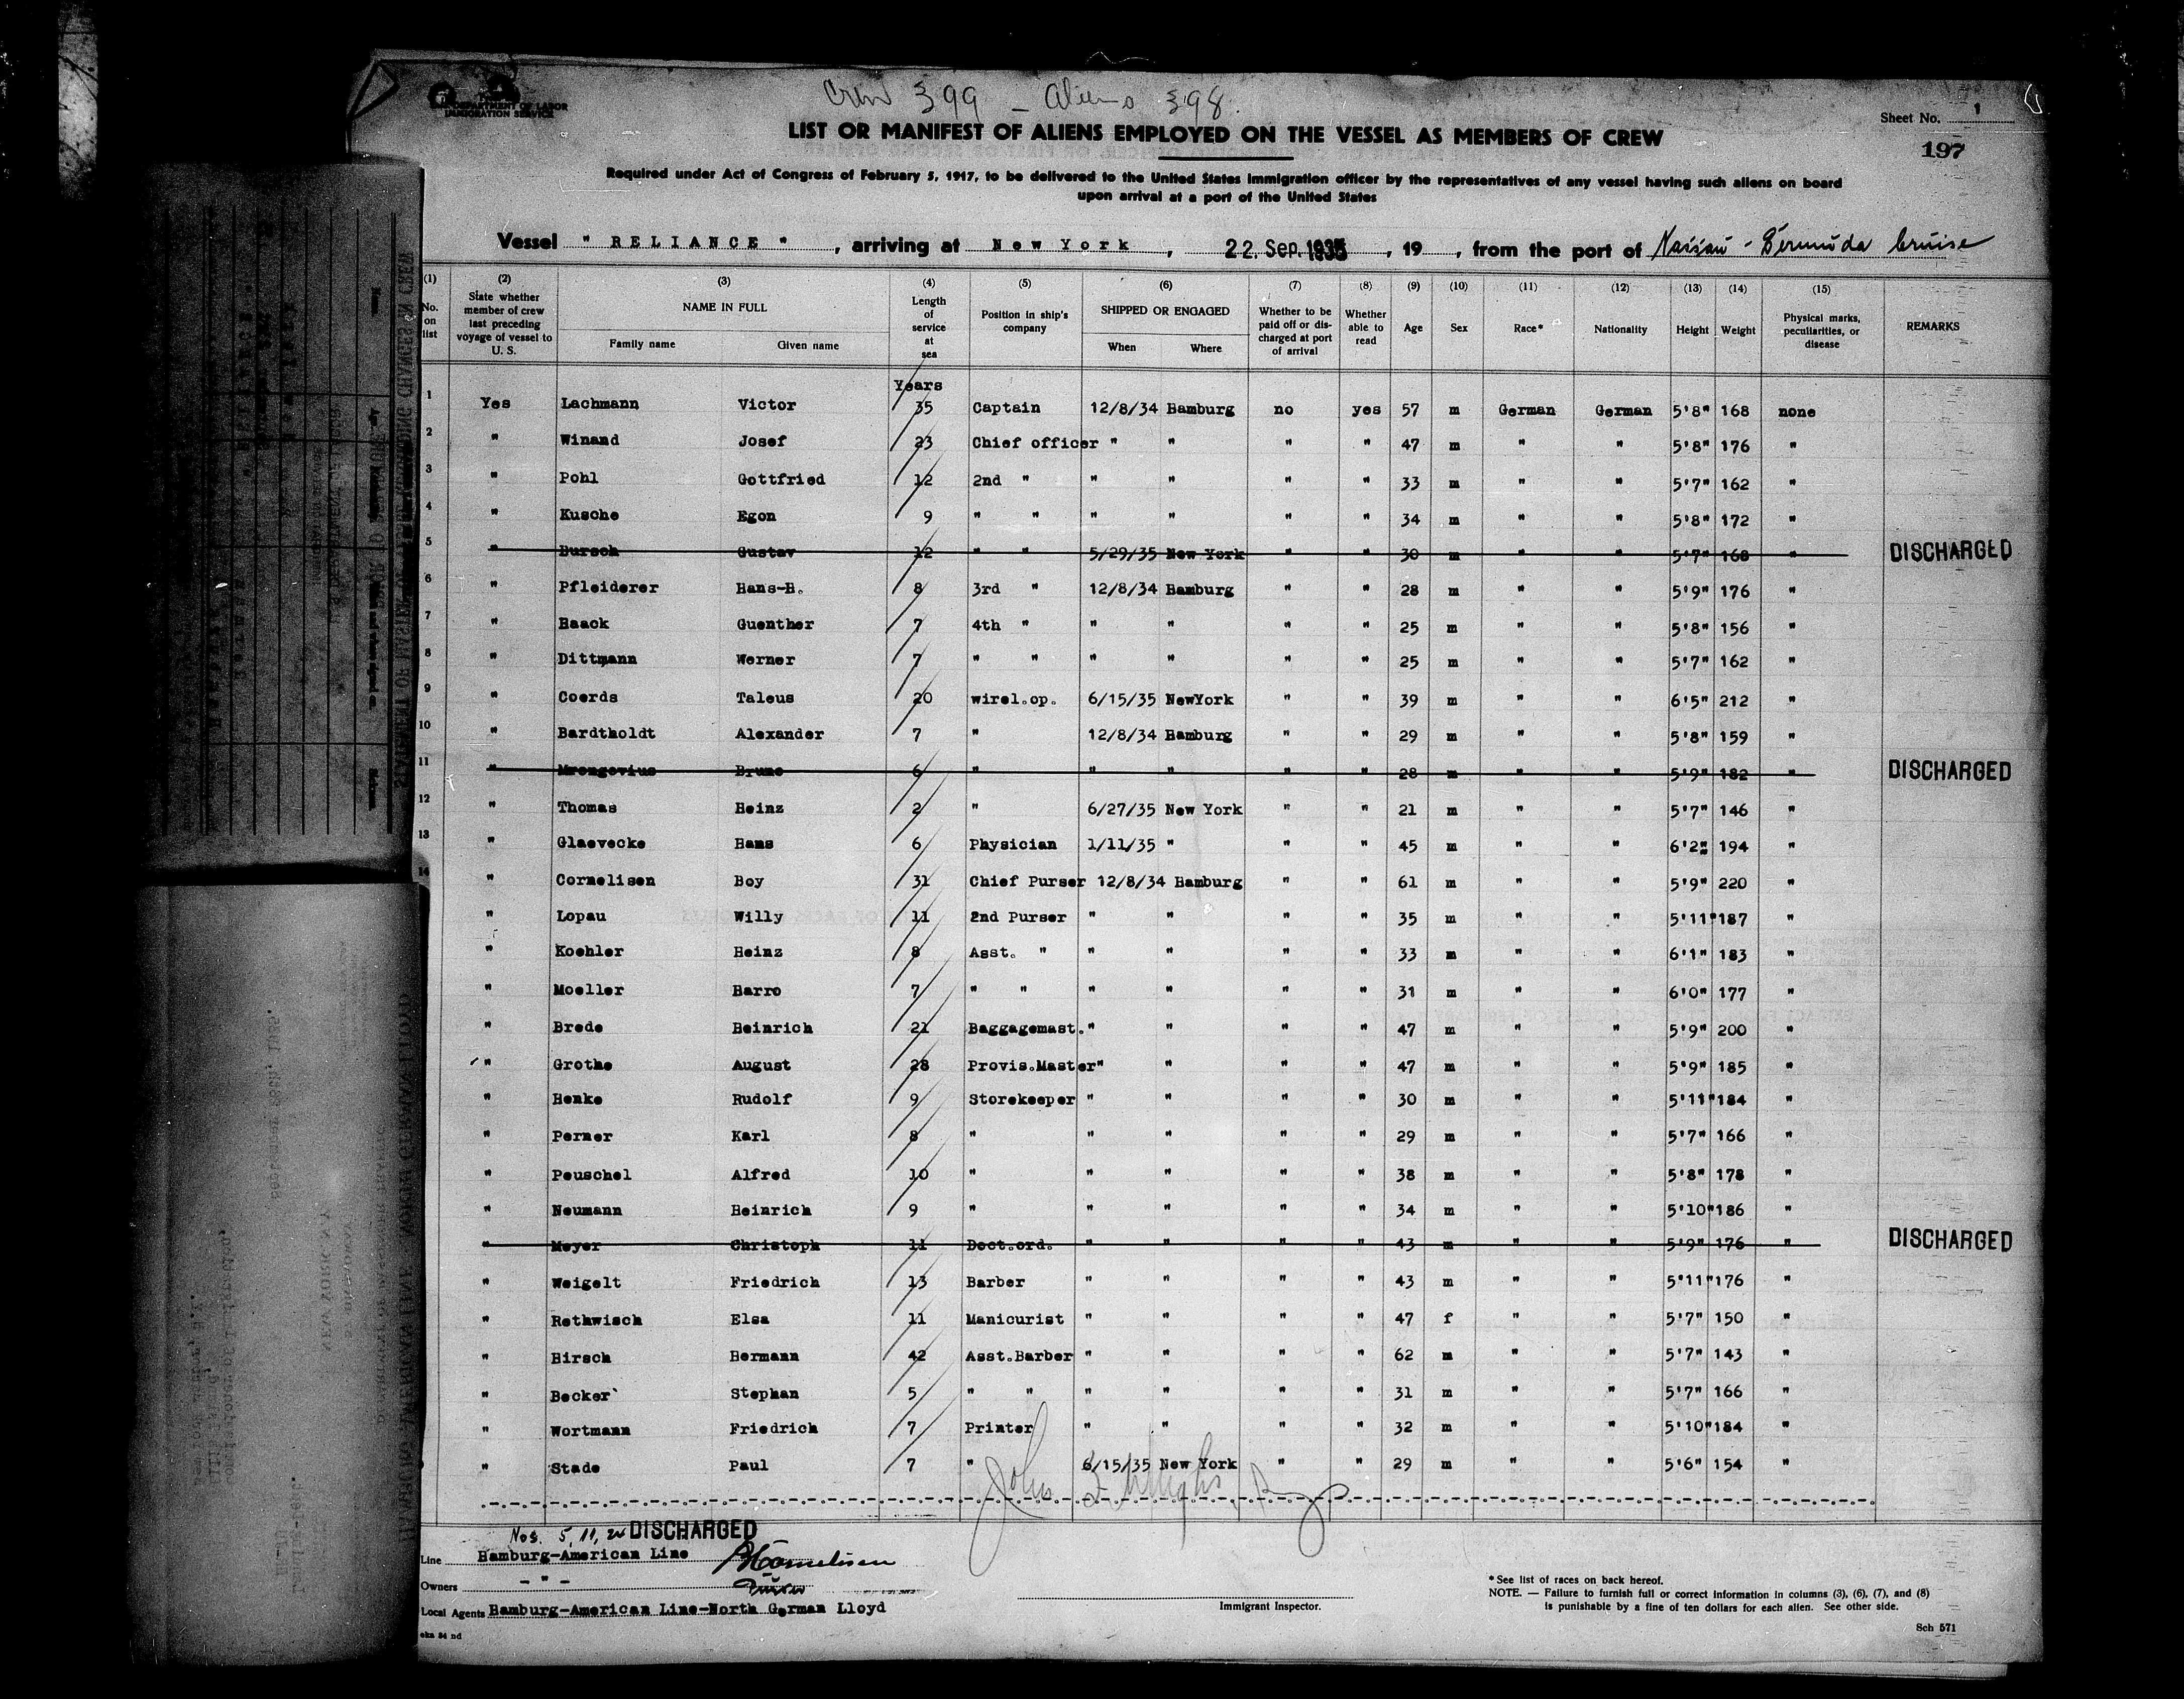 U. S. DEPARTMENT OF LABOR
IMMIGRATION SERVICE
Crew 399 - Aliens 398.
Sheet No. 1
197
LIST OR MANIFEST OF ALIENS EMPLOYED ON THE VESSEL AS MEMBERS OF CREW
Required under Act of Congress of February 5, 1917, to be delivered to the United States Immigration officer by the representatives of any vessel having such aliens on board
upon arrival at a port of the United States
Vessel " RELIANCE ", arriving at New York, 22. Sep. 1935, 19, from the port of Nassau - Bermuda Cruise
(1) No. on list (2) State whether member of crew last preceding voyage of vessel to U. S. (3) NAME IN FULL Family name Given name (4) Length of service at sea (5) Position in ship's company (6) SHIPPED OR ENGAGED When Where (7) Whether to be paid off or discharged at port of arrival (8) Whether able to read (9) Age (10) Sex (11) Race* (12) Nationality (13) Height (14) Weight (15) Physical marks, peculiarities, or disease REMARKS
Years
1 Yes Lachmann Victor 35 Captain 12/8/34 Hamburg no yes 57 m German German 5'8" 168 none
2 " Winand Josef 23 Chief officer " " " " 47 m " " 5'8" 176 "
3 " Pohl Gottfried 12 2nd " " " " " 33 m " " 5'7" 162 "
4 " Kusche Egon 9 " " " " " " 34 m " " 5'8" 172 "
5 " Bursch Gustav 12 " " 5/29/35 New York " " 30 m " " 5'7" 168 " DISCHARGED
6 " Pfleiderer Hans-H. 8 3rd " 12/8/34 Hamburg " " 28 m " " 5'9" 176 "
7 " Haack Guenther 7 4th " " " " " 25 m " " 5'8" 156 "
8 " Dittmann Werner 7 " " " " " " 25 m " " 5'7" 162 "
9 " Coerds Taleus 20 wirel.op. 6/15/35 NewYork " " 39 m " " 6'5" 212 "
10 " Bardtholdt Alexander 7 " 12/8/34 Hamburg " " 29 m " " 5'8" 159 "
11 " Mrongovius Bruno 6 " " " " " 28 m " " 5'9" 182 " DISCHARGED
12 " Thomas Heinz 2 " 6/27/35 New York " " 21 m " " 5'7" 146 "
13 " Glaevecke Hans 6 Physician 1/11/35 " " " 45 m " " 6'2" 194 "
14 " Cornelisen Boy 31 Chief Purser 12/8/34 Hamburg " " 61 m " " 5'9" 220 "
" Lopau Willy 11 2nd Purser " " " " 35 m " " 5'11" 187 "
" Koehler Heinz 8 Asst. " " " " " 33 m " " 6'1" 183 "
" Moeller Harro 7 " " " " " " 31 m " " 6'0" 177 "
" Brede Heinrich 21 Baggagemast. " " " " 47 m " " 5'9" 200 "
" Grothe August 28 Provis.Master " " " " 47 m " " 5'9" 185 "
" Henke Rudolf 9 Storekeeper " " " " 30 m " " 5'11" 184 "
" Perner Karl 8 " " " " " 29 m " " 5'7" 166 "
" Peuschel Alfred 10 " " " " " 38 m " " 5'8" 178 "
" Neumann Heinrich 9 " " " " " 34 m " " 5'10" 186 "
" Meyer Christoph 11 Doct.ord. " " " " 43 m " " 5'9" 176 " DISCHARGED
" Weigelt Friedrich 13 Barber " " " " 43 m " " 5'11" 176 "
" Rethwisch Elsa 11 Manicurist " " " " 47 f " " 5'7" 150 "
" Hirsch Hermann 42 Asst.Barber " " " " 62 m " " 5'7" 143 "
" Becker Stephan 5 " " " " " " 31 m " " 5'7" 166 "
" Wortmann Friedrich 7 Printer " " " " 32 m " " 5'10" 184 "
" Stade Paul 7 " 6/15/35 New York " " 29 m " " 5'6" 154 "
Nos. 5, 11, 24 DISCHARGED
Line Hamburg-American Line
BCornelisen
Owners - " -
Purser
Local Agents Hamburg-American Line-North German Lloyd
Immigrant Inspector.
* See list of races on back hereof.
NOTE. — Failure to furnish full or correct information in columns (3), (6), (7), and (8)
is punishable by a fine of ten dollars for each alien. See other side.
Sch 571